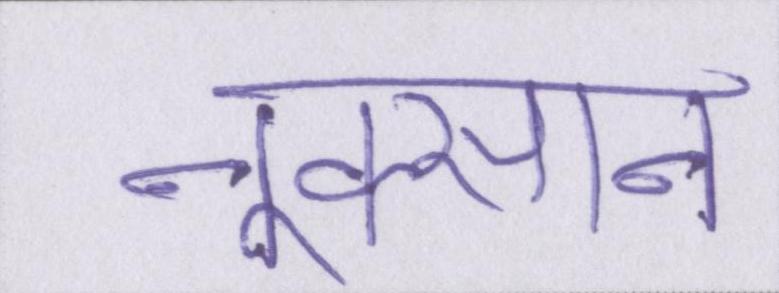 नूक्सान